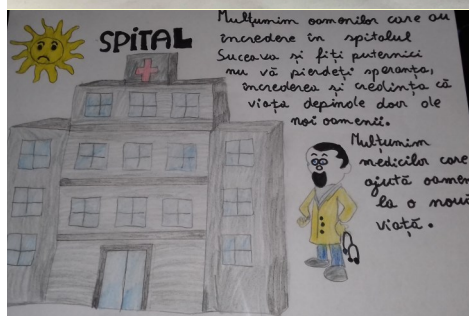 SPITAL
Mulțumim oamenilor care au
încredere în spitalul
Suceava și fiți puternici
nu vă pierdeți speranța,
încrederea și credința că
viața depinde doar de
noi oamenii.
Mulțumim
medicilor care
ajută oameni
la o nouă
viață.